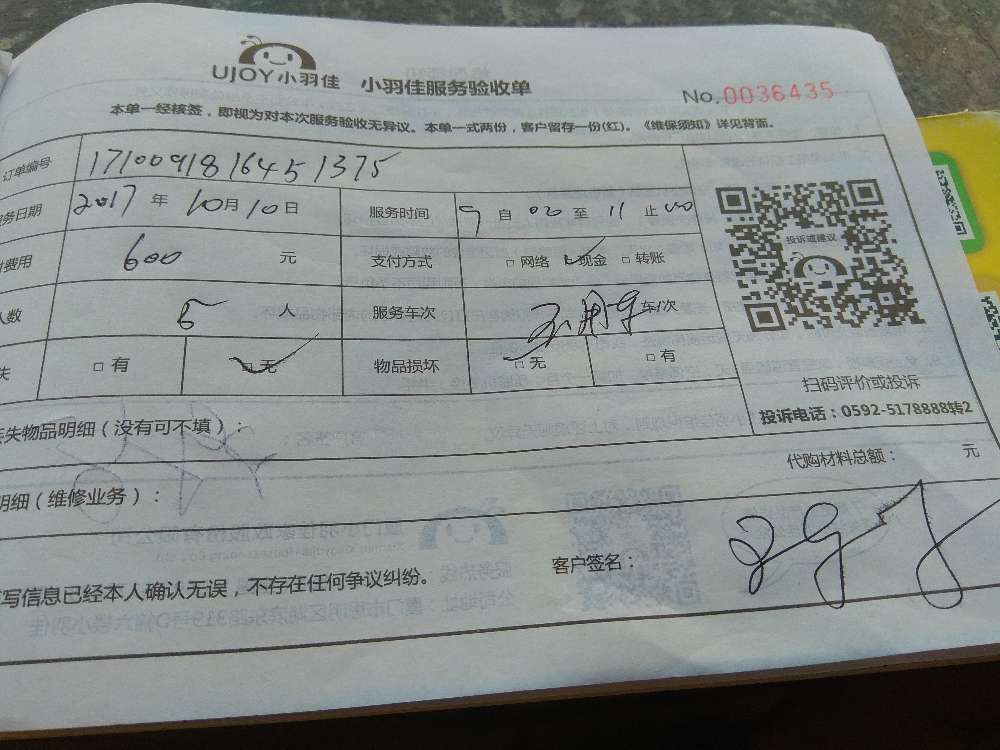 UJOY小羽佳 小羽佳服务验收单
No.0036435
本单一经核签，即视为对本次服务验收无异议。本单一式两份，客户留存一份(红)。《维保须知》详见背面。
订单编号 1710091816451375
务日期 2017 年 10月10日 服务时间 9 自 00 至 11 止 00
费用 600 元 支付方式 □ 网络 □现金 □ 转账
人数 人 服务车次 不用车 车/次
失 □ 有 □ 无 物品损坏 □ 无 □ 有
投诉或建议
扫码评价或投诉
投诉电话：0592-5178888转2
失物品明细（没有可不填）：
代购材料总额： 元
明细（维修业务）：
写信息已经本人确认无误，不存在任何争议纠纷。
客户签名：